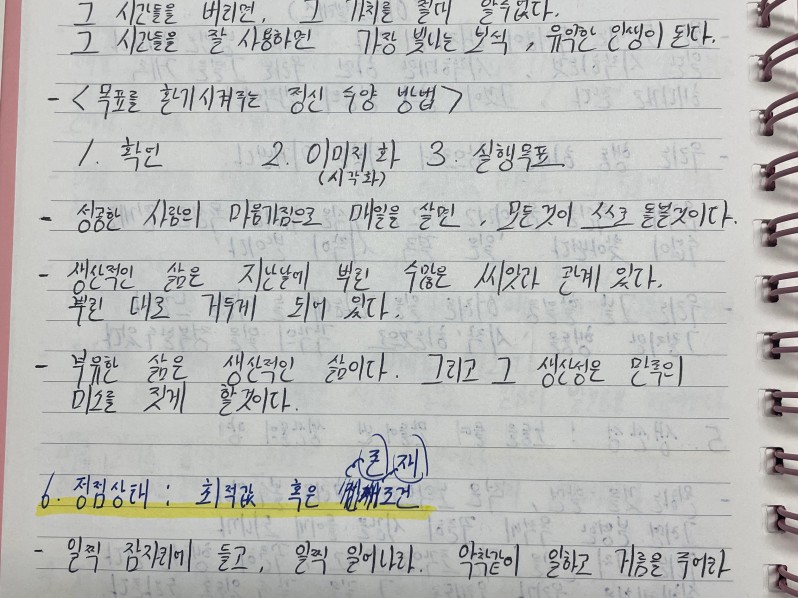 그 시간들을 버리면, 그 가치를 절대 알수없다.
그 시간들을 잘 사용하면 가장 빛나는 보석, 유익한 인생이 된다.
- <목표를 환기시켜주는 정신 수양 방법>
1. 확언 2. 이미지화 3. 실행목표
(시각화)
- 성공한 사람의 마음가짐으로 매일을 살면, 모든것이 스스로 돌볼것이다.
- 생산적인 삶은 지난날에 뿌린 수많은 씨앗과 관계 있다.
뿌린 대로 거두게 되어 있다.
- 부유한 삶은 생산적인 삶이다. 그리고 그 생산성은 만족의
미소를 짓게 할것이다.
존재
6. 정점상태 : 최적값 혹은 조건
- 일찍 잠자리에 들고, 일찍 일어나라. 악착같이 일하고 거름을 주어라